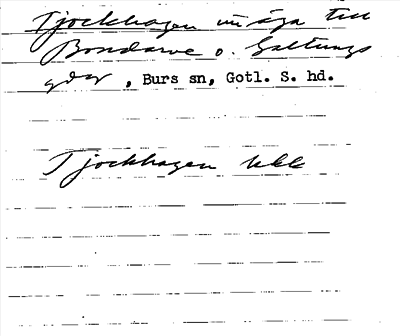 Tjockhagen in äga till
Bondarve o. Galtungs
gdar, Burs sn, Gotl. S. hd.
Tjockhagen Ukk